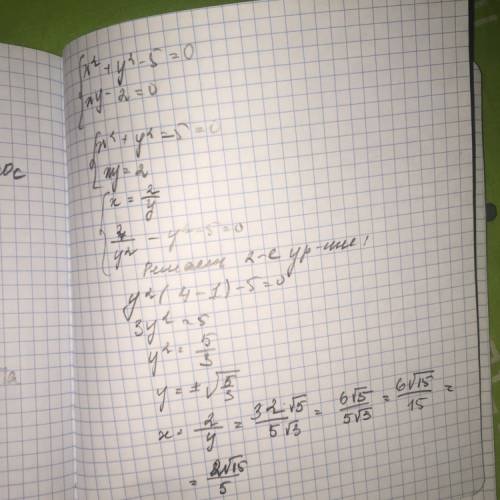 x² + y² - 5 = 0
xy - 2 = 0
x² + y² = 5 = 0
xy = 2
x = 2/y
4/y² - y² - 5 = 0
Решаем 2-е ур-ние!
y²(4 - 1) - 5 = 0
3y² = 5
y² = 5/3
y = ±√(5/3)
x = 2/y = 3·2·√5/5√3 = 6√5/5√3 = 6√15/15 =
= 2√15/5